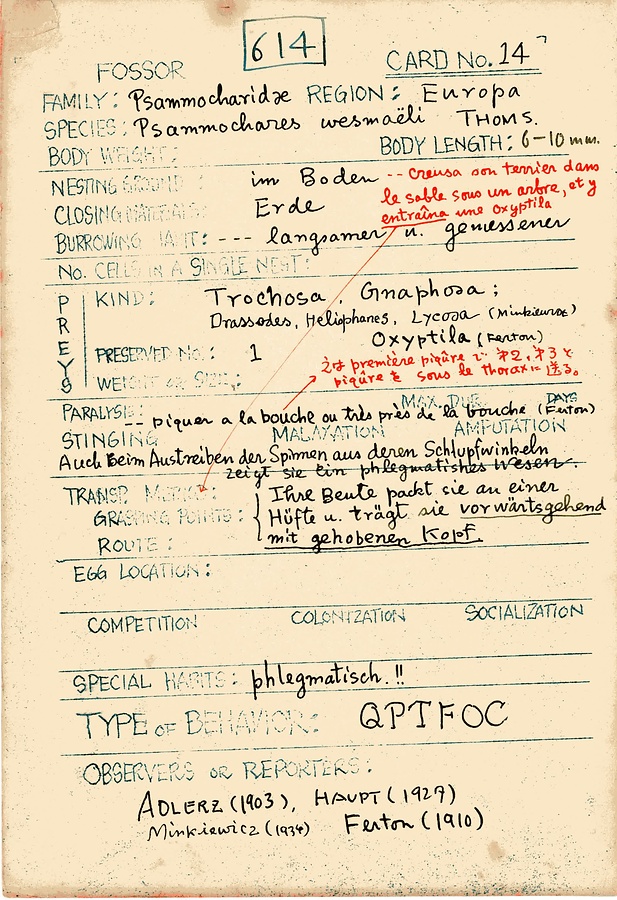 614
FOSSOR CARD No. 14
FAMILY: Psammocharidæ REGION: Europa
SPECIES: Psammochares wesmaëli THOMS.
BODY WEIGHT: BODY LENGTH: 6-10 mm.
NESTING GROUND: im Boden -- creusa son terrier dans
le sable sous un arbre, et y
CLOSING MATERIALS: Erde
entraîna une oxyptila
BURROWING HABIT: --- langsamer u. gemessener
No. CELLS IN A SINGLE NEST:
PREYS
KIND: Trochosa, Gnaphosa;
Drassodes, Heliophanes, Lycosa (Minkiewicz)
Oxyptila (Ferton)
PRESERVED No.: 1
première piqûre
WEIGHT OR SIZE:
piqûre sous le thorax
MAX. DUR. DAYS
PARALYSIS: -- piquer a la bouche ou très près de la bouche (Ferton)
STINGING MALAXATION AMPUTATION
Auch Beim Austreiben der Spinnen aus deren Schlupfwinkeln
zeigt sie ein phlegmatishes Wesen.
TRANSP. METHOD: Ihre Beute packt sie an einer
GRASPING POINTS: Hüfte u. trägt sie vorwärtsgehend
ROUTE: mit gehobenen Kopf.
EGG LOCATION:
COMPETITION COLONIZATION SOCIALIZATION
SPECIAL HABITS: phlegmatisch.!!
TYPE OF BEHAVIOR: QPTFOC
OBSERVERS OR REPORTERS:
ADLERZ (1903), HAUPT (1927)
Minkiewicz (1934) Ferton (1910)